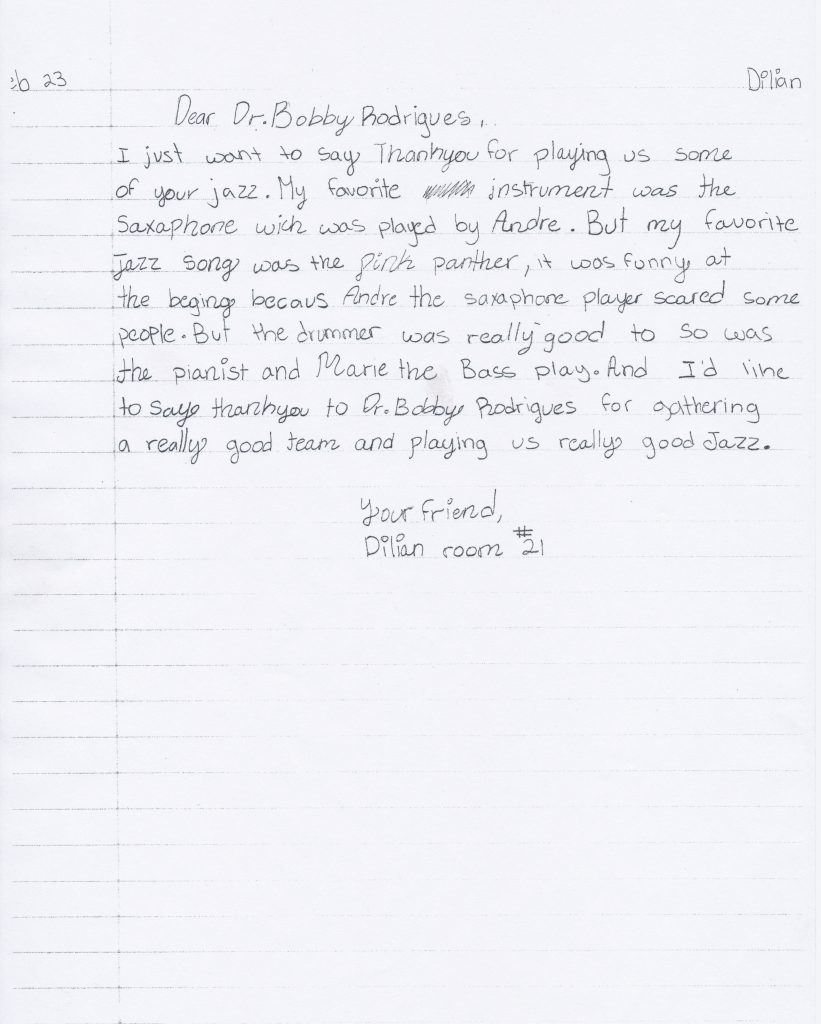 eb 23 Dilian
Dear Dr. Bobby Rodrigues,
I just want to say Thankyou for playing us some
of your jazz. My favorite instrument was the
Saxaphone wich was played by Andre. But my favorite
Jazz song was the pink panther, it was funny at
the beging becaus Andre the saxaphone player scared some
people. But the drummer was really good to so was
the pianist and Marie the Bass play. And I'd like
to say thankyou to Dr. Bobby Rodrigues for gathering
a really good team and playing us really good Jazz.
Your friend,
Dilian room #21